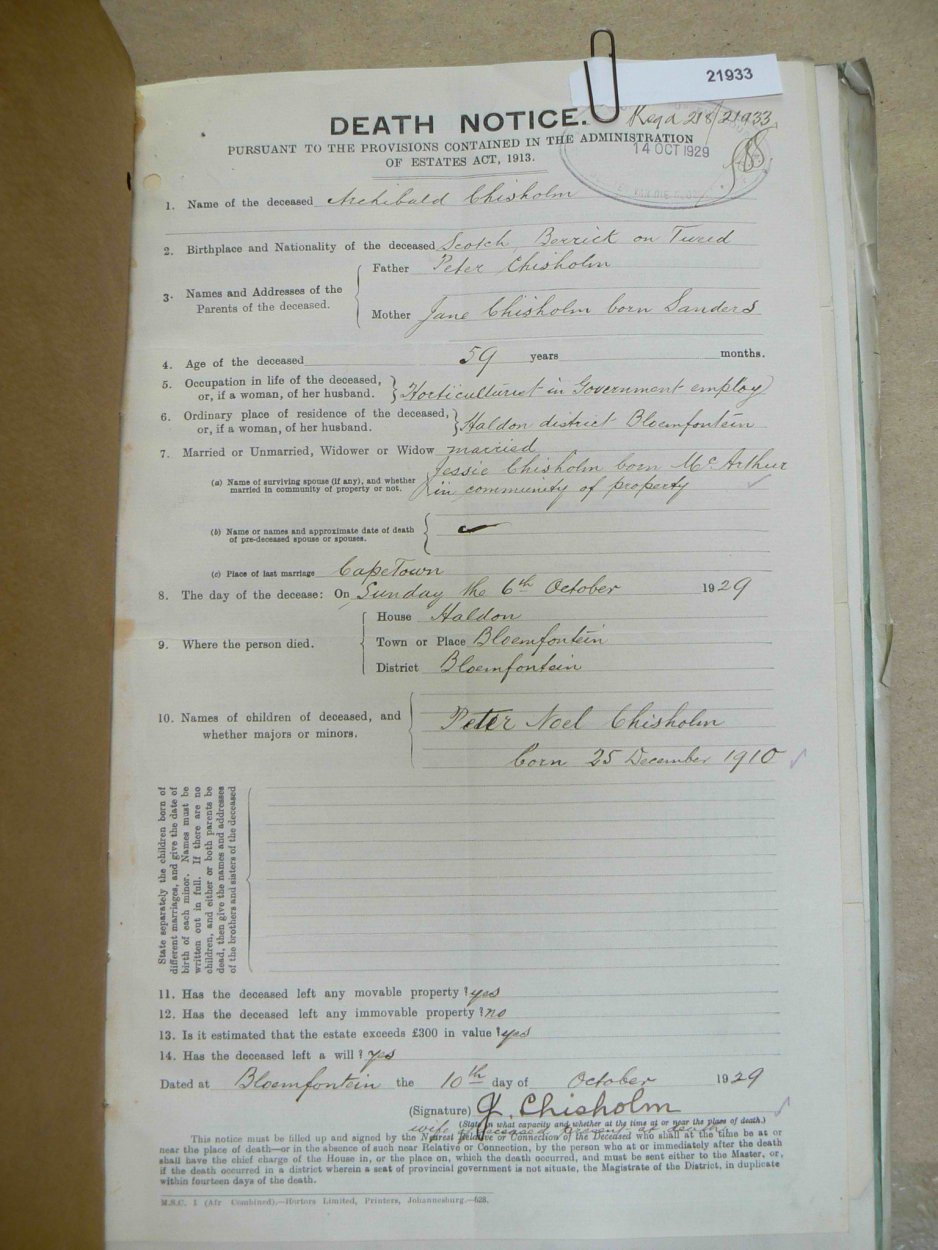 21933
Regd 218/21933
DEATH NOTICE.
PURSUANT TO THE PROVISIONS CONTAINED IN THE ADMINISTRATION
OF ESTATES ACT, 1913.
14 OCT 1929
1. Name of the deceased Archibald Chisholm
2. Birthplace and Nationality of the deceased Scotch, Berrick on Tweed
3. Names and Addresses of the Parents of the deceased.
Father Peter Chisholm
Mother Jane Chisholm born Sanders
4. Age of the deceased 59 years months.
5. Occupation in life of the deceased,
or, if a woman, of her husband. Horticulturist in Government employ
6. Ordinary place of residence of the deceased,
or, if a woman, of her husband. Haldon district Bloemfontein
7. Married or Unmarried, Widower or Widow married
(a) Name of surviving spouse (if any), and whether
married in community of property or not.
Jessie Chisholm born McArthur
in community of property
(b) Name or names and approximate date of death
of pre-deceased spouse or spouses.
(c) Place of last marriage CapeTown
8. The day of the decease: On Sunday the 6th October 1929
9. Where the person died.
House Haldon
Town or Place Bloemfontein
District Bloemfontein
10. Names of children of deceased, and
whether majors or minors.
Peter Noel Chisholm
born 25 December 1910
State separately the children born of
different marriages, and give the date of
birth of each minor. Names must be
written out in full. If there are no
children, and either or both parents be
dead, then give the names and addresses
of the brothers and sisters of the deceased
11. Has the deceased left any movable property? yes
12. Has the deceased left any immovable property? no
13. Is it estimated that the estate exceeds £300 in value? yes
14. Has the deceased left a will? yes
Dated at Bloemfontein the 10th day of October 1929
(Signature) J. Chisholm
(State in what capacity and whether at the time at or near the place of death.)
wife of deceased present at death
This notice must be filled up and signed by the Nearest Relative or Connection of the Deceased who shall at the time be at or
near the place of death—or in the absence of such near Relative or Connection, by the person who at or immediately after the death
shall have the chief charge of the House in, or the place on, which the death occurred, and must be sent either to the Master, or,
if the death occurred in a district wherein a seat of provincial government is not situate, the Magistrate of the District, in duplicate
within fourteen days of the death.
M.S.C. 1 (Afr Combined).—Hortors Limited, Printers, Johannesburg.—628.